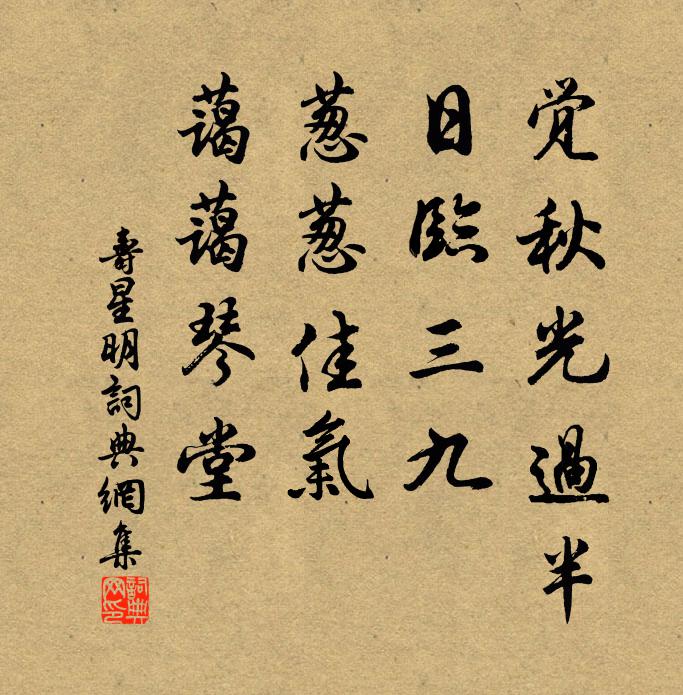 覚秋光過半
日臨三九
葱葱佳氣
藹藹琴堂
壽星明詞典網集
詞典网印